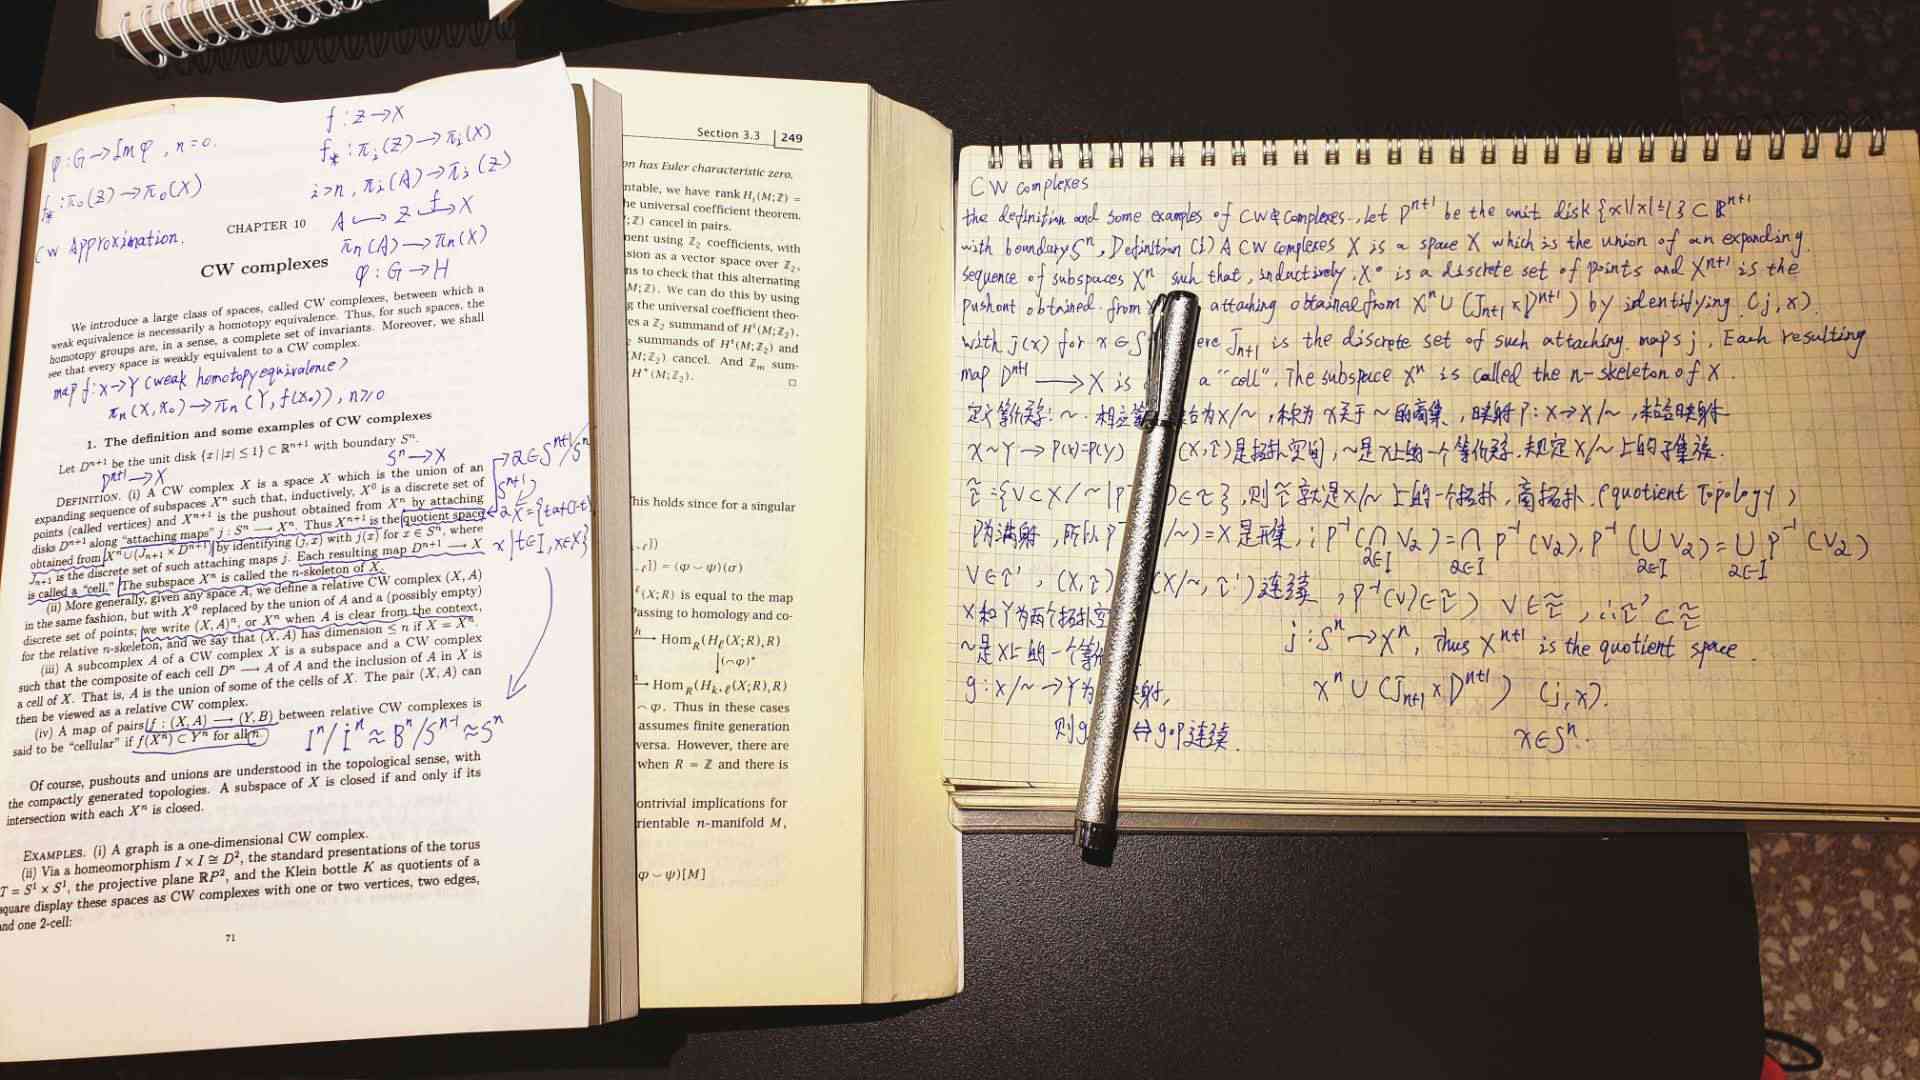 φ : G → Im φ , n = 0.
f : Z → X
f_* : π_i(Z) → π_i(X)
f_* : π_0(Z) → π_0(X)
i > n , π_i(A) → π_i(Z)
A ↪ Z →f X
CW Approximation.
π_n(A) → π_n(X)
φ : G → H
CHAPTER 10
CW complexes
We introduce a large class of spaces, called CW complexes, between which a
weak equivalence is necessarily a homotopy equivalence. Thus, for such spaces, the
homotopy groups are, in a sense, a complete set of invariants. Moreover, we shall
see that every space is weakly equivalent to a CW complex.
map f : X → Y (weak homotopy equivalence)
π_n(X, x_0) → π_n(Y, f(x_0)), n ≥ 0
1. The definition and some examples of CW complexes
Let D^{n+1} be the unit disk {x | |x| ≤ 1} ⊂ R^{n+1} with boundary S^n.
D^{n+1} → X
S^n → X
DEFINITION. (i) A CW complex X is a space X which is the union of an
expanding sequence of subspaces X^n such that, inductively, X^0 is a discrete set of
points (called vertices) and X^{n+1} is the pushout obtained from X^n by attaching
disks D^{n+1} along "attaching maps" j : S^n ⟶ X^n. Thus X^{n+1} is the quotient space
obtained from X^n ∪ (J_{n+1} × D^{n+1}) by identifying (j, x) with j(x) for x ∈ S^n, where
J_{n+1} is the discrete set of such attaching maps j. Each resulting map D^{n+1} ⟶ X
is called a "cell." The subspace X^n is called the n-skeleton of X.
(ii) More generally, given any space A, we define a relative CW complex (X, A)
in the same fashion, but with X^0 replaced by the union of A and a (possibly empty)
discrete set of points; we write (X, A)^n, or X^n when A is clear from the context,
for the relative n-skeleton, and we say that (X, A) has dimension ≤ n if X = X^n.
(iii) A subcomplex A of a CW complex X is a subspace and a CW complex
such that the composite of each cell D^n ⟶ A of A and the inclusion of A in X is
a cell of X. That is, A is the union of some of the cells of X. The pair (X, A) can
then be viewed as a relative CW complex.
(iv) A map of pairs f : (X, A) ⟶ (Y, B) between relative CW complexes is
said to be "cellular" if f(X^n) ⊂ Y^n for all n.
I^n / İ^n ≈ B^n / S^{n-1} ≈ S^n
Of course, pushouts and unions are understood in the topological sense, with
the compactly generated topologies. A subspace of X is closed if and only if its
intersection with each X^n is closed.
EXAMPLES. (i) A graph is a one-dimensional CW complex.
(ii) Via a homeomorphism I × I ≅ D^2, the standard presentations of the torus
T = S^1 × S^1, the projective plane RP^2, and the Klein bottle K as quotients of a
square display these spaces as CW complexes with one or two vertices, two edges,
and one 2-cell:
71
Section 3.3 | 249
on has Euler characteristic zero.
ntable, we have rank H_i(M; Z) =
he universal coefficient theorem.
; Z) cancel in pairs.
nent using Z_2 coefficients, with
sion as a vector space over Z_2,
ns to check that this alternating
M; Z). We can do this by using
g the universal coefficient theo-
es a Z_2 summand of H^i(M; Z_2).
summands of H^i(M; Z_2) and
M; Z_2) cancel. And Z_m sum-
H^*(M; Z_2). □
his holds since for a singular
(φ ⌣ ψ)(σ)
(X; R) is equal to the map
assing to homology and co-
Hom_R(H_ℓ(X; R), R)
↓(⌢φ)^*
Hom_R(H_{k+ℓ}(X; R), R)
⌢ φ. Thus in these cases
assumes finite generation
versa. However, there are
when R = Z and there is
ontrivial implications for
rientable n-manifold M,
φ ⌣ ψ)[M]
CW complexes
the definition and some examples of CW complexes. Let D^{n+1} be the unit disk {x||x|≤1} ⊂ R^{n+1}
with boundary S^n, Definition (i) A CW complexes X is a space X which is the union of an expanding
sequence of subspaces X^n such that, inductively, X^0 is a discrete set of points and X^{n+1} is the
pushout obtained from attaching obtained from X^n ∪ (J_{n+1} × D^{n+1}) by identifying (j, x).
with j(x) for x ∈ S ere J_{n+1} is the discrete set of such attaching maps j. Each resulting
map D^{n+1} ⟶ X is a "cell". The subspace X^n is called the n-skeleton of X.
定义等价关系: ~. 相立等 合为X/~, 称为X关于~的商集, 映射P: X→X/~, 粘合映射
x ~ Y → P(x)=P(y) (X,τ)是拓扑空间, ~是X上的一个等价关系. 规定X/~上的子集族.
τ̃ = {V ⊂ X/~ | p ) ∈ τ}, 则τ̃就是X/~上的一个拓扑, 商拓扑. (quotient Topology)
P为满射, 所以P /~) = X是开集, ∴ p^{-1}(∩_{α∈I} V_α) = ∩_{α∈I} p^{-1}(V_α), p^{-1}(∪_{α∈I} V_α) = ∪_{α∈I} p^{-1}(V_α)
V ∈ τ', (X,τ) (X/~, τ')连续, p^{-1}(V) ∈ τ) V ∈ τ̃, ∴ τ' ⊂ τ̃
X和Y为两个拓扑空
j : S^n → X^n, Thus X^{n+1} is the quotient space.
~是X上的一个等价
g : X/~ → Y为 映射,
X^n ∪ (J_{n+1} × D^{n+1}) (j, x).
则g ⇔ g∘p连续.
x ∈ S^n.